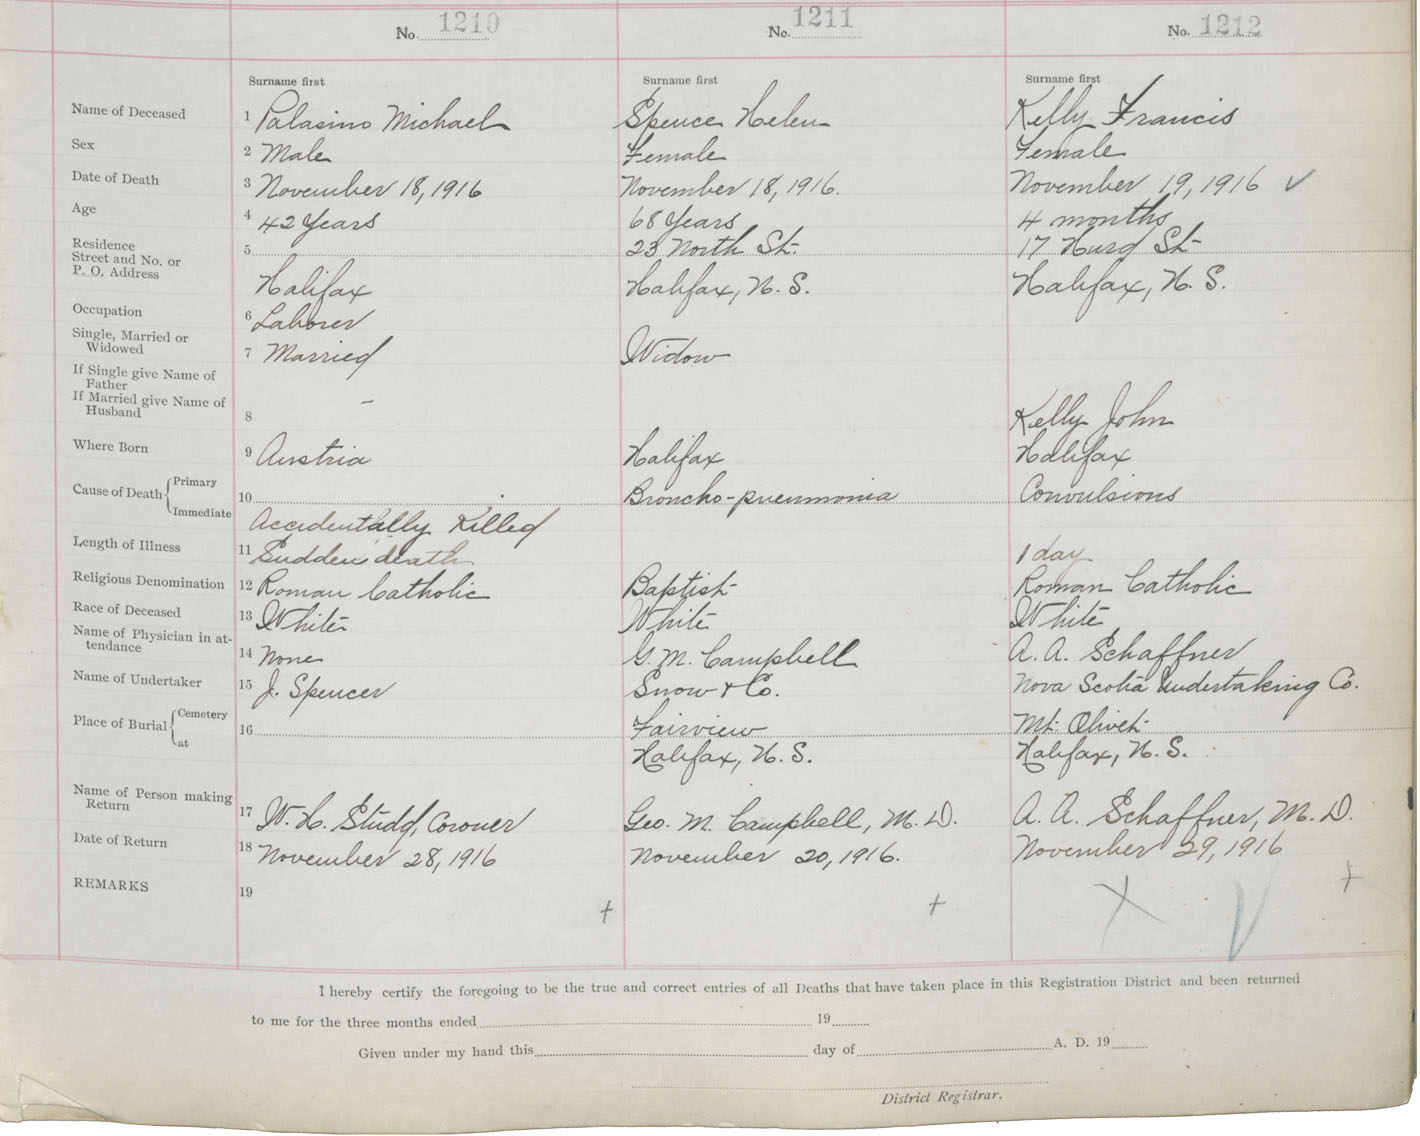 No. 1210 No. 1211 No. 1212
Surname first Surname first Surname first
Name of Deceased 1 Palasino Michael Spence Helen Kelly Francis
Sex 2 Male Female Female
Date of Death 3 November 18, 1916 November 18, 1916. November 19, 1916 ✓
Age 4 42 Years 68 Years 4 months
Residence 5 23 North St. 17 Hurd St
Street and No. or
P. O. Address Halifax Halifax, N. S. Halifax, N. S.
Occupation 6 Laborer
Single, Married or
Widowed 7 Married Widow
If Single give Name of
Father
If Married give Name of –
Husband 8 Kelly John
Where Born 9 Austria Halifax Halifax
Cause of Death { Primary
10 Broncho-pneumonia Convulsions
Immediate Accidentally Killed
Length of Illness 11 Sudden death 1 day
Religious Denomination 12 Roman Catholic Baptist Roman Catholic
Race of Deceased 13 White White White
Name of Physician in at-
tendance 14 None G. M. Campbell A. A. Schaffner
Name of Undertaker 15 J. Spencer Snow & Co. Nova Scotia Undertaking Co.
Place of Burial { Cemetery 16 Fairview Mt. Olivet
at Halifax, N. S. Halifax, N. S.
Name of Person making
Return 17 W. H. Studd, Coroner Geo. M. Campbell, M. D. A. A. Schaffner, M. D.
Date of Return 18 November 28, 1916 November 20, 1916. November 29, 1916
REMARKS 19 + + X ✓ +
I hereby certify the foregoing to be the true and correct entries of all Deaths that have taken place in this Registration District and been returned
to me for the three months ended 19
Given under my hand this day of A. D. 19
District Registrar.